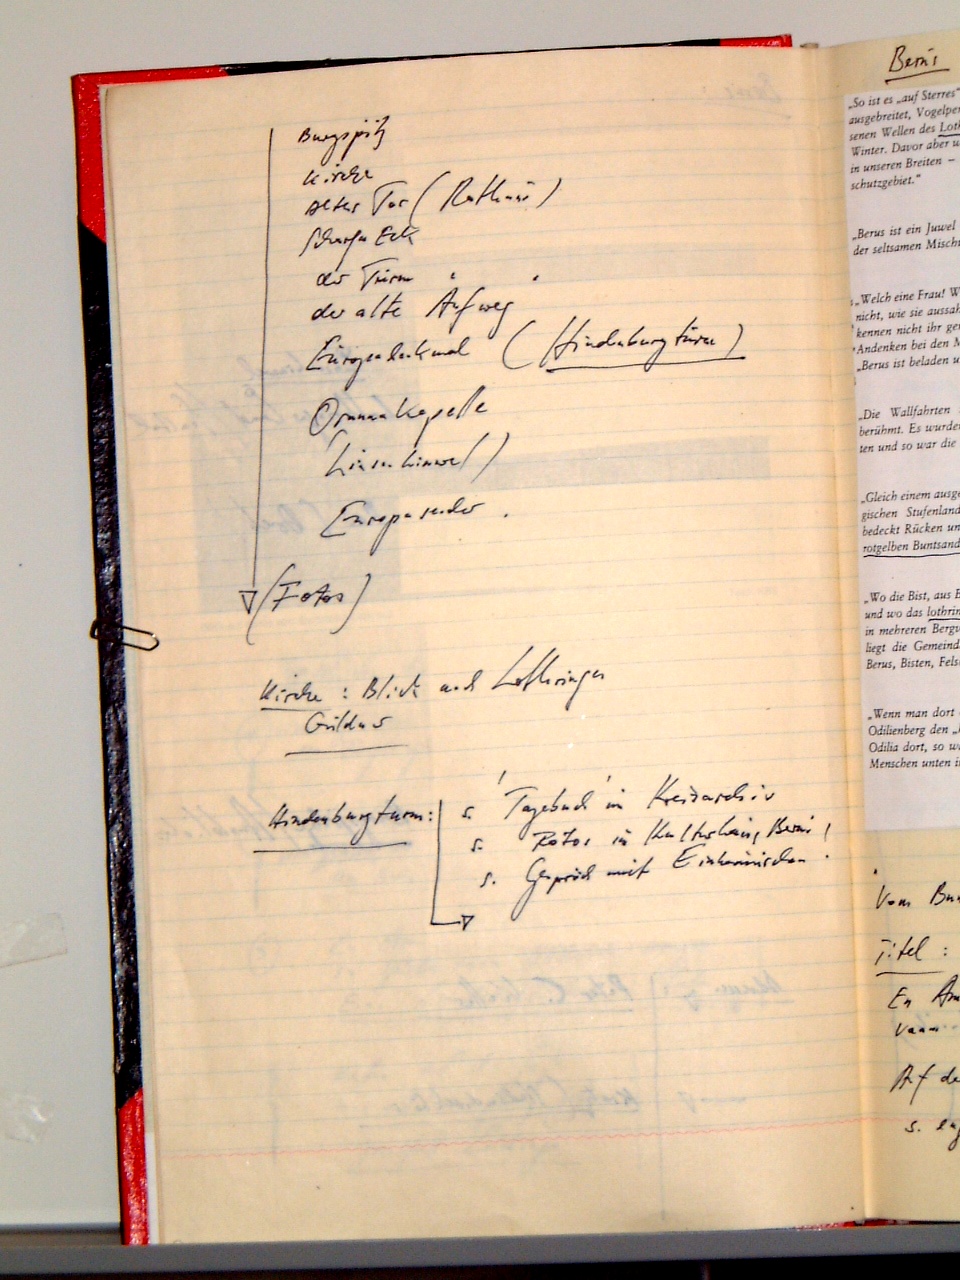 Burgspitz
Kirche
altes Tor (Rathaus)
Scharfe Eck
der Turm
der alte Aufweg
Europadenkmal (Hindenburgturm)
Orannakapelle
Europasender.
(Fotos)
Kirche: Blick nach Lothringen
Hindenburgturm:
s. 'Tagebuch' im Kreisarchiv
s. Fotos im Kulturhaus Berus!
s. Gespräch mit Einheimischen.
Berus
„So ist es „auf Sterres"
ausgebreitet, Vogelper
senen Wellen des Loth
Winter. Davor aber u
in unseren Breiten –
schutzgebiet."
„Berus ist ein Juwel
der seltsamen Misch
„Welch eine Frau! W
nicht, wie sie aussah
kennen nicht ihr ger
Andenken bei den M
„Berus ist beladen u
„Die Wallfahrten
berühmt. Es wurde
ten und so war die
„Gleich einem ausge
gischen Stufenland
bedeckt Rücken un
rotgelben Buntsand
„Wo die Bist, aus B
und wo das lothrin
in mehreren Bergv
liegt die Gemeind
Berus, Bisten, Fels
„Wenn man dort
Odilienberg den „
Odilia dort, so w
Menschen unten i
Vom
Titel: